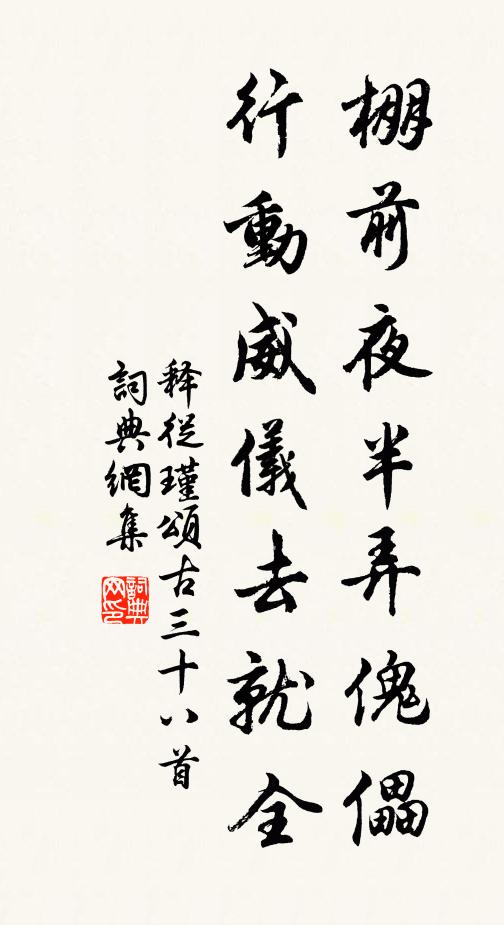 棚前夜半弄傀儡
行動威儀去就全
释從瑾頌古三十八首
詞典網集
詞典网印